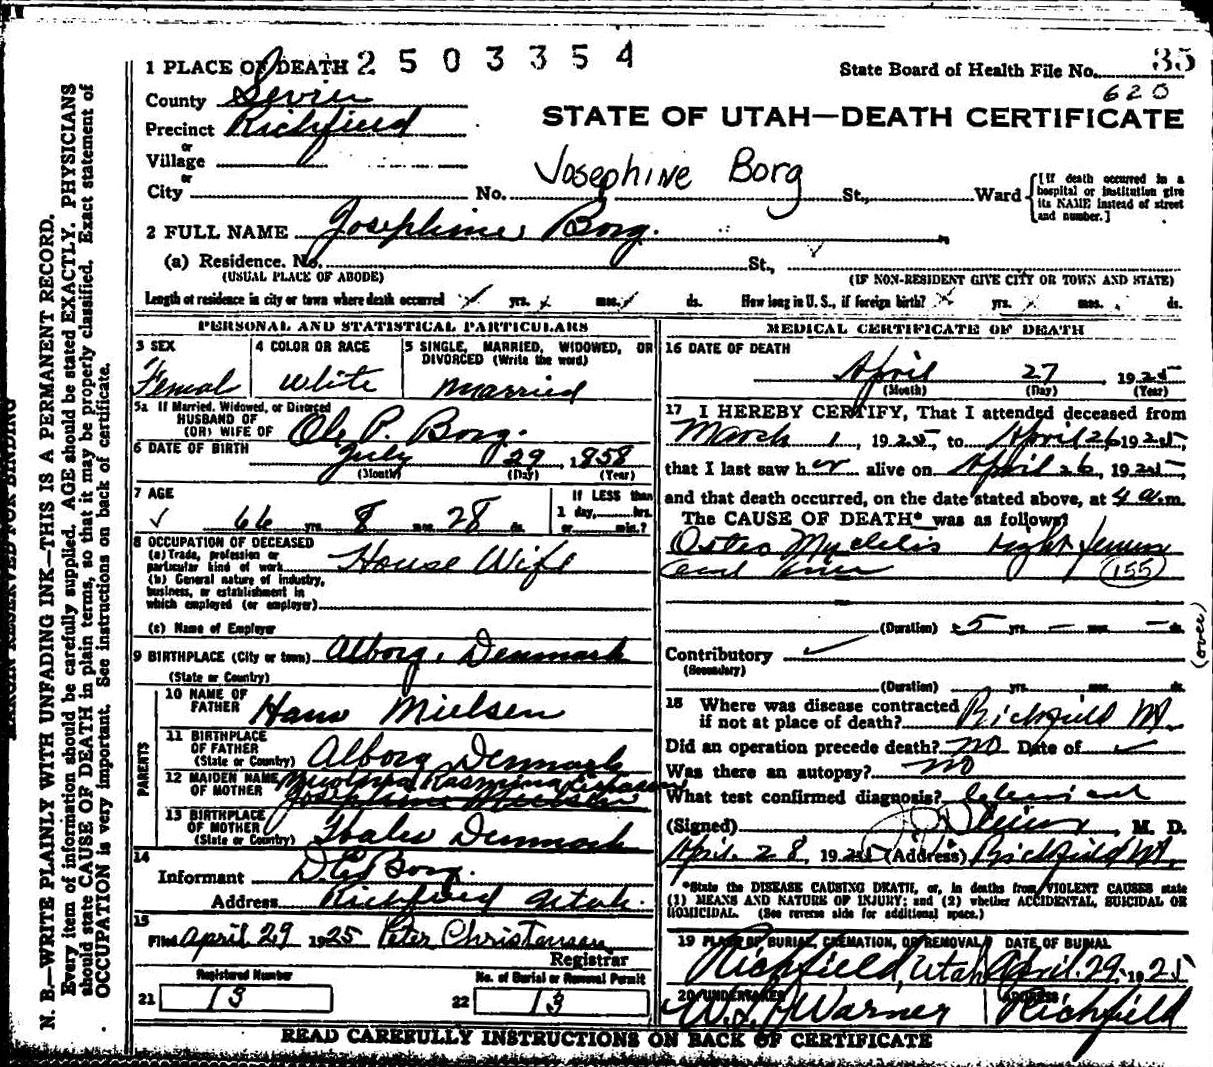 1 PLACE OF DEATH 2 5 0 3 3 5 4
State Board of Health File No. 35
620
County Sevier
STATE OF UTAH—DEATH CERTIFICATE
Precinct Richfield
or
Village
or
Josephine Borg
City No. St., Ward
[If death occurred in a hospital or institution give its NAME instead of street and number.]
2 FULL NAME Josephine Borg.
(a) Residence. No. St.,
(USUAL PLACE OF ABODE) (IF NON-RESIDENT GIVE CITY OR TOWN AND STATE)
Length of residence in city or town where death occurred yrs. mos. ds. How long in U. S., if foreign birth? yrs. mos. ds.
PERSONAL AND STATISTICAL PARTICULARS
3 SEX 4 COLOR OR RACE 5 SINGLE, MARRIED, WIDOWED, OR DIVORCED (Write the word)
Femal White Married
5a If Married, Widowed, or Divorced
HUSBAND OF
(OR) WIFE OF Ole P. Borg.
6 DATE OF BIRTH July 29 1858
(Month) (Day) (Year)
7 AGE
66 yrs. 8 mos. 28 ds.
If LESS than
1 day, hrs.
or min.?
8 OCCUPATION OF DECEASED
(a) Trade, profession or
particular kind of work House Wife
(b) General nature of industry,
business, or establishment in
which employed (or employer)
(c) Name of Employer
9 BIRTHPLACE (City or town) Alborg, Denmark
(State or Country)
PARENTS
10 NAME OF
FATHER Hans Nielsen
11 BIRTHPLACE
OF FATHER
(State or Country) Alborg Denmark
12 MAIDEN NAME
OF MOTHER Rasmina
Josephine Nielsen
13 BIRTHPLACE
OF MOTHER
(State or Country) Denmark
14
Informant Borg.
Address Richfield Utah.
15
Filed April 29 1925 Peter Christensen
Registrar
Registered Number No. of Burial or Removal Permit
21 13 22 13
MEDICAL CERTIFICATE OF DEATH
16 DATE OF DEATH
April 27, 1925
(Month) (Day) (Year)
17 I HEREBY CERTIFY, That I attended deceased from
March 1, 1925, to April 26 1925,
that I last saw her alive on April 26, 1925,
and that death occurred, on the date stated above, at 4 a.m.
The CAUSE OF DEATH* was as follows:
Osteo Myelitis right femur
and
155
(Duration) 5 yrs. — mos. — ds.
(over)
Contributory
(Secondary)
(Duration) yrs. mos. ds.
18 Where was disease contracted
if not at place of death? Richfield Ut.
Did an operation precede death? No Date of
Was there an autopsy? No
What test confirmed diagnosis?
(Signed) , M. D.
April 28, 1925 (Address) Richfield Ut.
*State the DISEASE CAUSING DEATH, or, in deaths from VIOLENT CAUSES state
(1) MEANS AND NATURE OF INJURY; and (2) whether ACCIDENTAL, SUICIDAL OR
HOMICIDAL. (See reverse side for additional space.)
19 PLACE OF BURIAL, CREMATION, OR REMOVAL DATE OF BURIAL
Richfield, Utah April 29, 1925
20 UNDERTAKER ADDRESS
Warner Richfield
READ CAREFULLY INSTRUCTIONS ON BACK OF CERTIFICATE
MARGIN RESERVED FOR BINDING
N. B.—WRITE PLAINLY WITH UNFADING INK—THIS IS A PERMANENT RECORD.
Every item of information should be carefully supplied. AGE should be stated EXACTLY. PHYSICIANS
should state CAUSE OF DEATH in plain terms, so that it may be properly classified. Exact statement of
OCCUPATION is very important. See instructions on back of certificate.